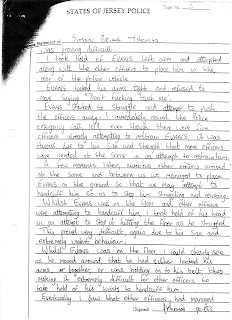 STATES OF JERSEY POLICE
Page No. 5
Statement of Simon Brian Thomas
was proving difficult.
I took hold of EVANS left arm and attempted
along with the other officers to place him in the
rear of the police vehicle.
EVANS locked his arms tight and refused to
move saying "Don't fucking touch me".
EVANS started to struggle and attempt to push
the officers away. I immediately issued the Police
emergency call, as even though there were five
officers already attempting to restrain EVANS, it was
obvious due to his size and strength that more officers
were needed at the scene in an attempt to restrain him.
A few moments later, numerous other officers arrived
at the scene and between us we managed to place
EVANS on the ground so that we may attempt to
handcuff him so as to stop him struggling and resisting.
Whilst EVANS was on the floor and other officers
were attempting to handcuff him, I took hold of his head
in an attempt to stop it hitting the floor as he struggled.
This proved very difficult again due to his size and
extremely violent behaviour.
Whilst EVANS was on the floor I could clearly see
as he moved around that he had either locked his
arms together or was holding on to his belt thus
making it extremely difficult for other officers to
take hold of his wrists to handcuff him.
Eventually I saw that other officers had managed
(Signed)